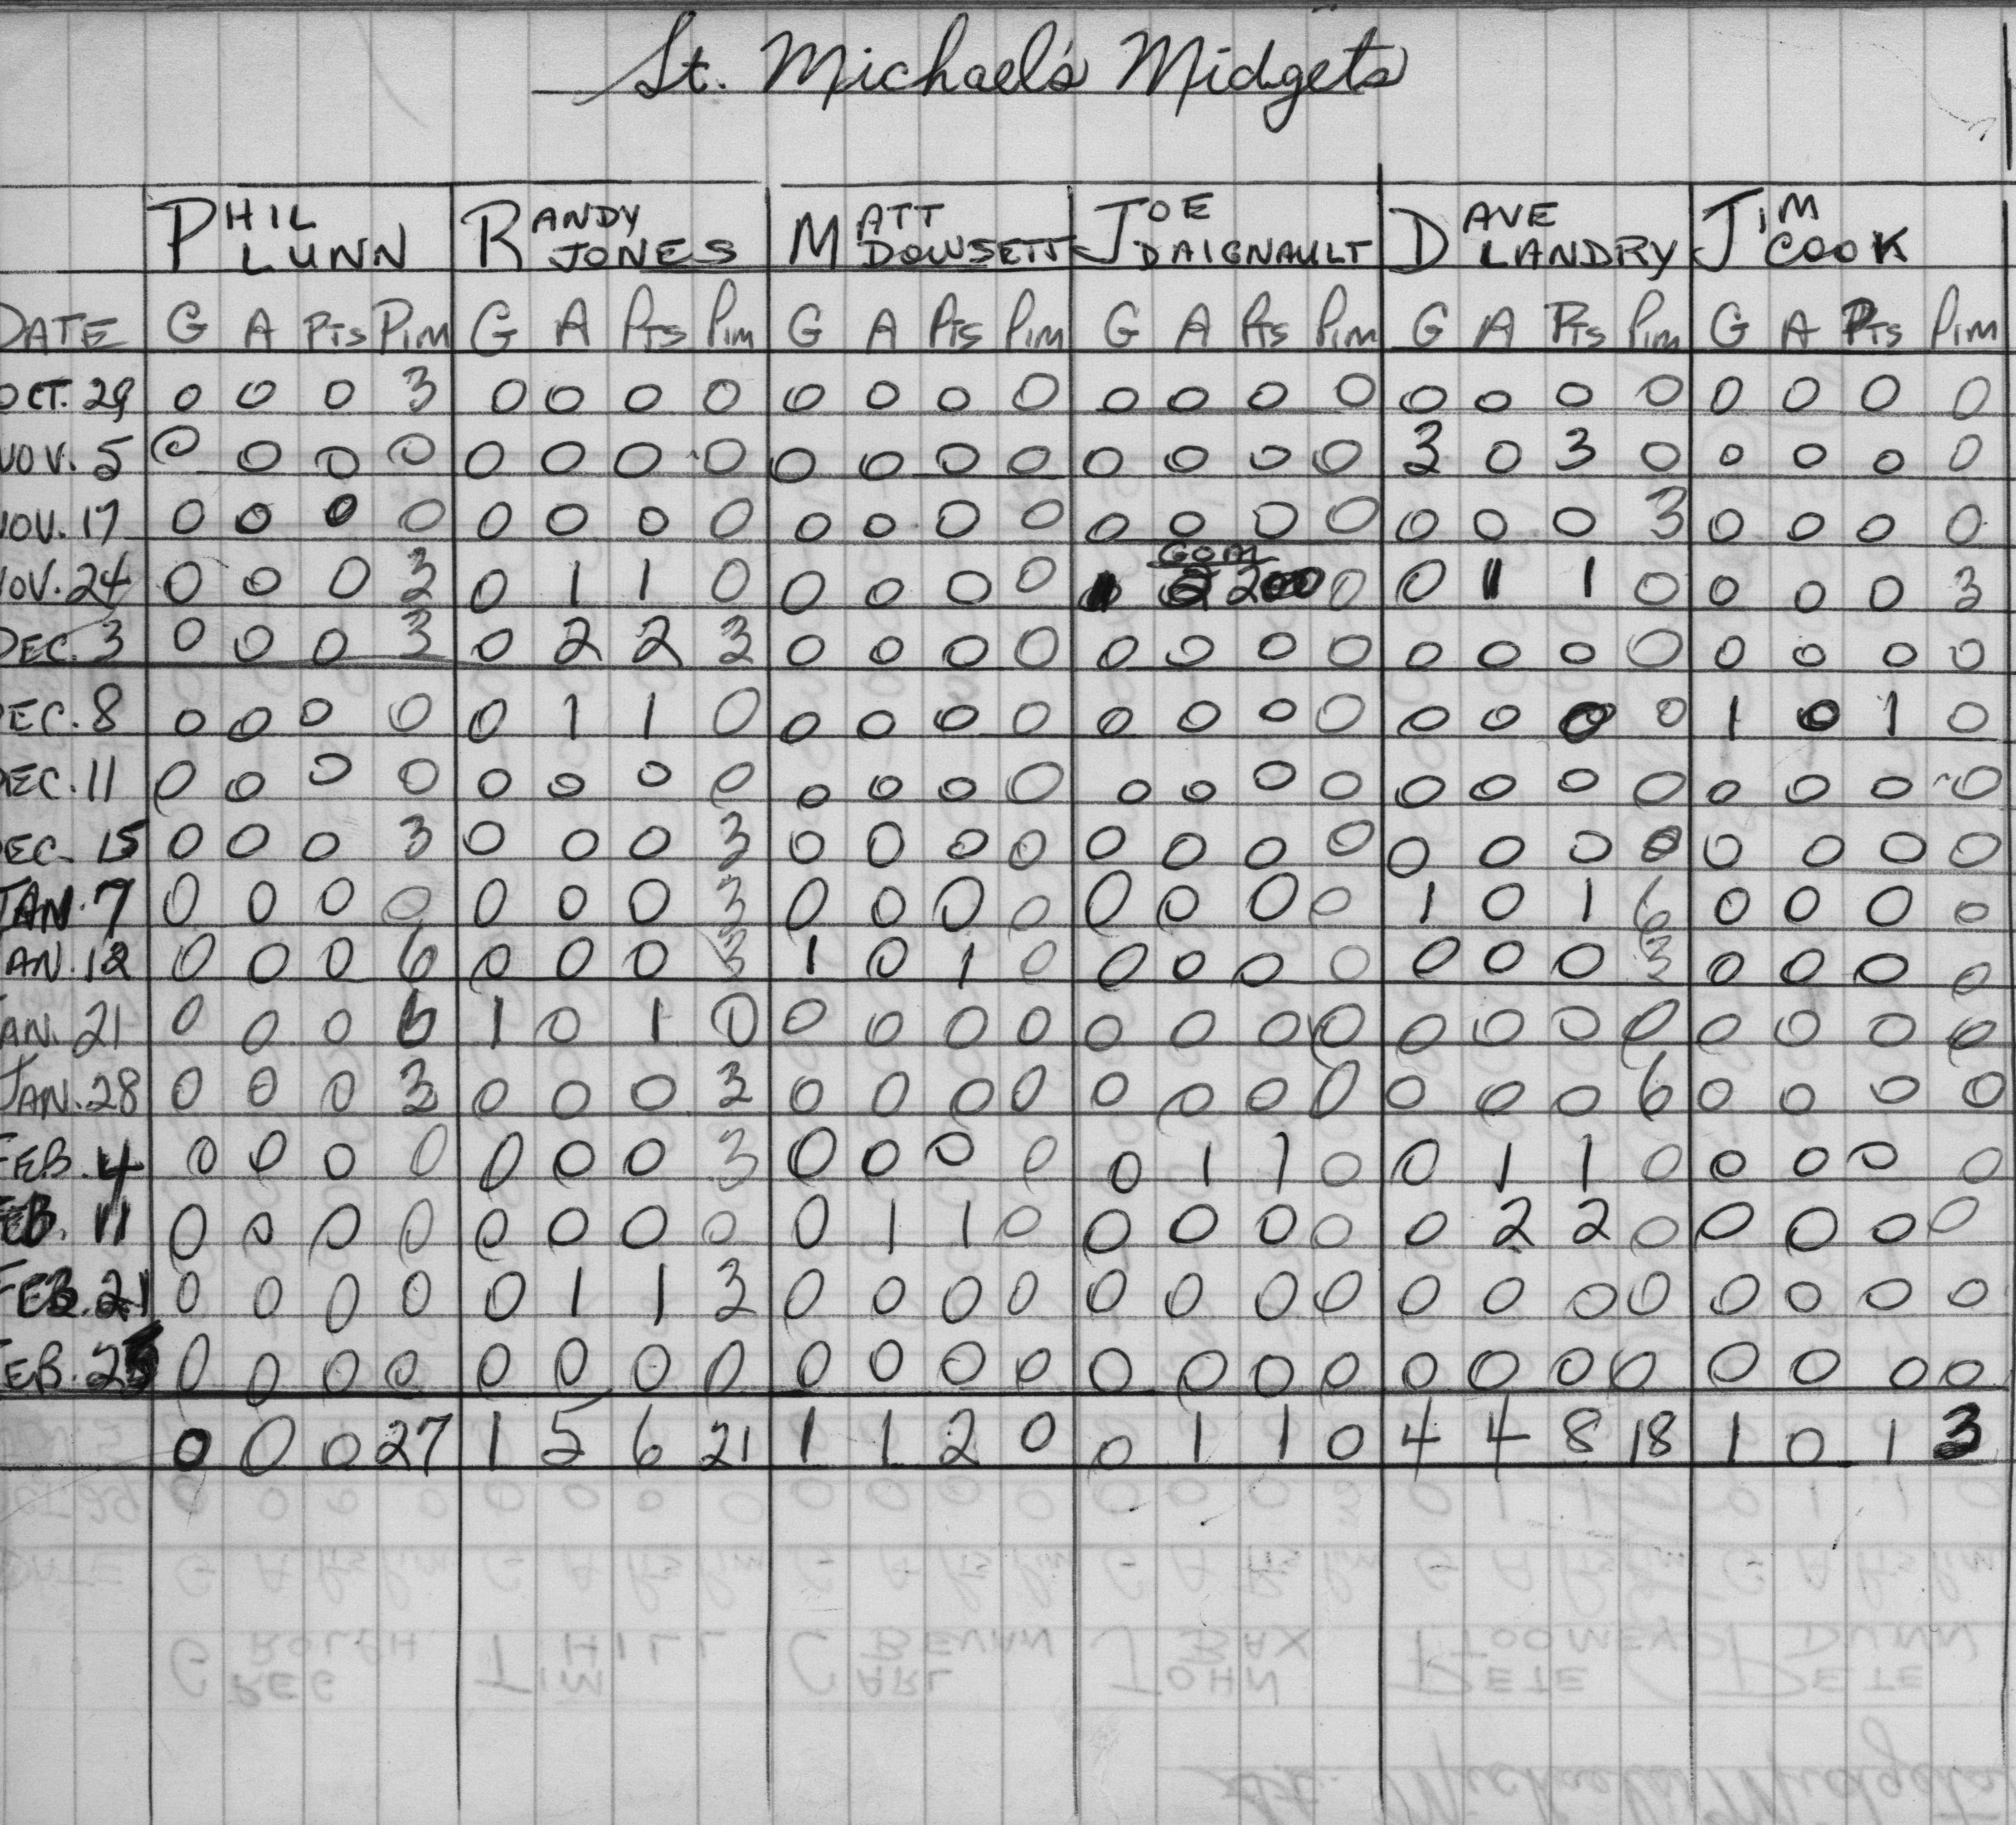 St. Michael's Midgets
PHIL LUNN RANDY JONES MATT DOWSETT JOE DAIGNAULT DAVE LANDRY JIM COOK
DATE G A PTS PIM G A PTS PIM G A PTS PIM G A PTS PIM G A PTS PIM G A PTS PIM
OCT. 29 0 0 0 3 0 0 0 0 0 0 0 0 0 0 0 0 0 0 0 0 0 0 0 0
NOV. 5 0 0 0 0 0 0 0 0 0 0 0 0 0 0 0 0 3 0 3 0 0 0 0 0
NOV. 17 0 0 0 0 0 0 0 0 0 0 0 0 0 0 0 0 0 0 0 3 0 0 0 0
NOV. 24 0 0 0 3 0 1 1 0 0 0 0 0 0 0 1 1 0 0 0 0 3
DEC. 3 0 0 0 3 0 2 2 3 0 0 0 0 0 0 0 0 0 0 0 0 0 0 0 0
DEC. 8 0 0 0 0 0 1 1 0 0 0 0 0 0 0 0 0 0 0 0 0 1 0 1 0
DEC. 11 0 0 0 0 0 0 0 0 0 0 0 0 0 0 0 0 0 0 0 0 0 0 0 0
DEC. 15 0 0 0 3 0 0 0 3 0 0 0 0 0 0 0 0 0 0 0 0 0 0 0 0
JAN. 7 0 0 0 0 0 0 0 3 0 0 0 0 0 0 0 0 1 0 1 6 0 0 0 0
JAN. 12 0 0 0 6 0 0 0 3 1 0 1 0 0 0 0 0 0 0 0 3 0 0 0 0
JAN. 21 0 0 0 6 1 0 1 0 0 0 0 0 0 0 0 0 0 0 0 0 0 0 0 0
JAN. 28 0 0 0 3 0 0 0 3 0 0 0 0 0 0 0 0 0 0 0 6 0 0 0 0
FEB. 4 0 0 0 0 0 0 0 3 0 0 0 0 0 1 1 0 0 1 1 0 0 0 0 0
FEB. 11 0 0 0 0 0 0 0 0 0 1 1 0 0 0 0 0 0 2 2 0 0 0 0 0
FEB. 21 0 0 0 0 0 1 1 3 0 0 0 0 0 0 0 0 0 0 0 0 0 0 0 0
FEB. 25 0 0 0 0 0 0 0 0 0 0 0 0 0 0 0 0 0 0 0 0 0 0 0 0
0 0 0 27 1 5 6 21 1 1 2 0 0 1 1 0 4 4 8 18 1 0 1 3